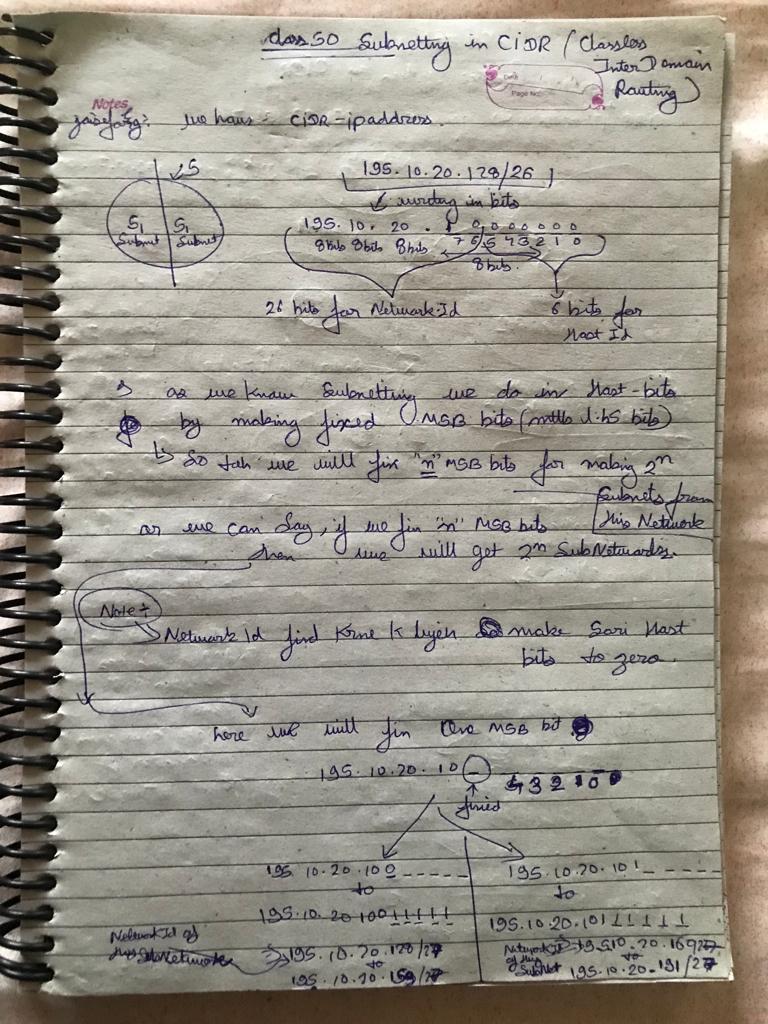 class 50 Subnetting in CIDR (Classless
Inter Domain
Routing)
Date
Page No.
Notes
we have CIDR-ipaddress.
S
195.10.20.128/26
in bits
195. 10. 20 . 1 0 0 0 0 0 0 0
8bits 8bits 8bits 7 6 5 4 3 2 1 0
8bits.
S1 S1
Subnet Subnet
26 bits for Network-Id
6 bits for
Host Id
as we know Subnetting we do in Host-bits
by making fixed MSB bits (
So we will fix "n" MSB bits for making 2ⁿ
Subnets from
this Network
or we can Say, if we fix "n" MSB bits
then we will get 2ⁿ SubNetworks.
Note:
Network Id find Krne k liyeh make Sari Host
bits to zero.
here we will fix One MSB bit
195.10.20.10 _ 4 3 2 1 0
fixed
195.10.20.100 _ _ _ _ _
to
195.10.20 100 1 1 1 1 1
Network Id of
this SubNetwork
195.10.20.128/27
to
195.10.20.159/27
195.10.20.101 _ _ _ _ _
to
195.10.20.101 1 1 1 1 1
Network Id
of this
SubNet
195.10.20.160/27
to
195.10.20.191/27